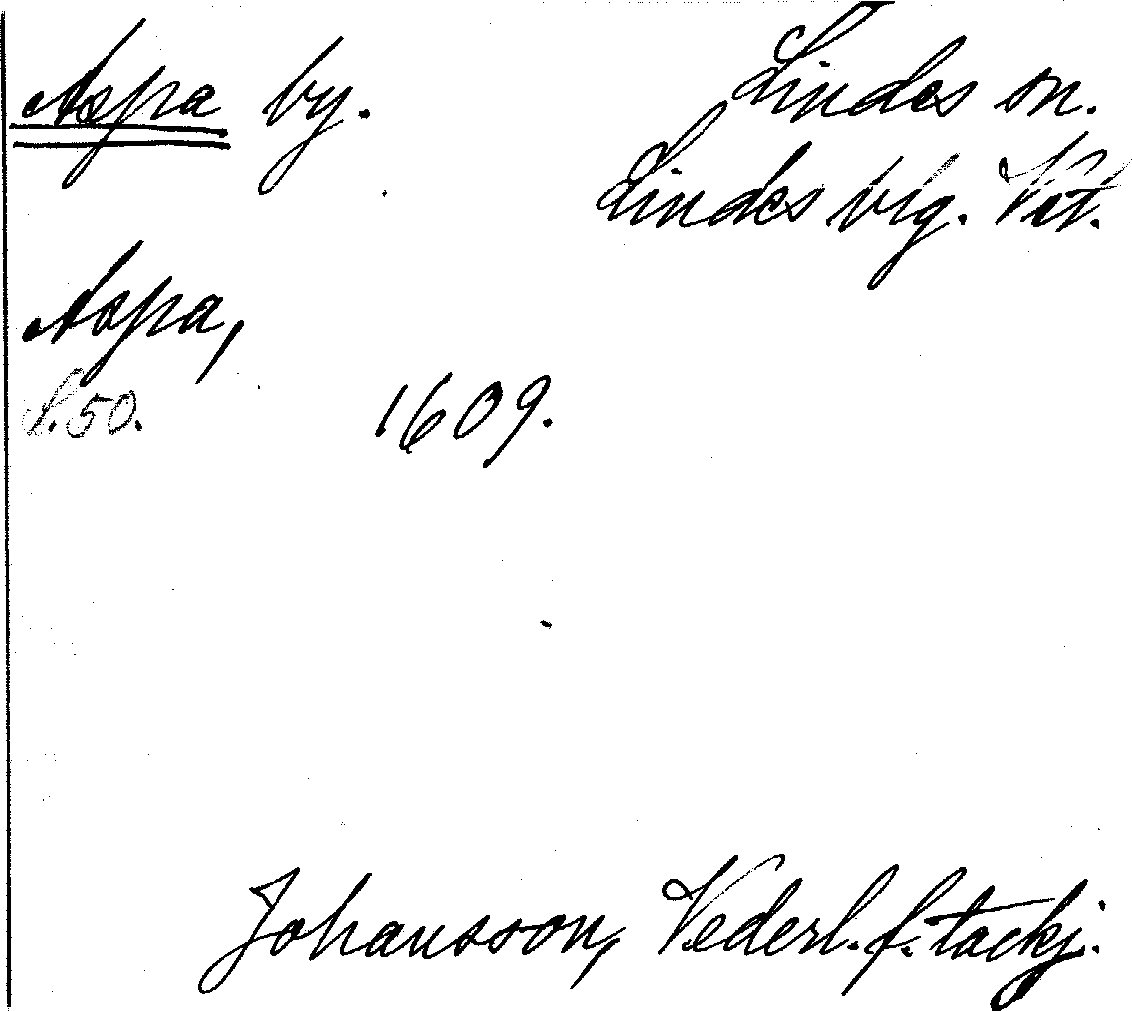 Aspa by. Lindes sn.
Lindes blg. Vst.
Aspa,
S. 50. 1609.
Johansson, Vederl. f. tackj.